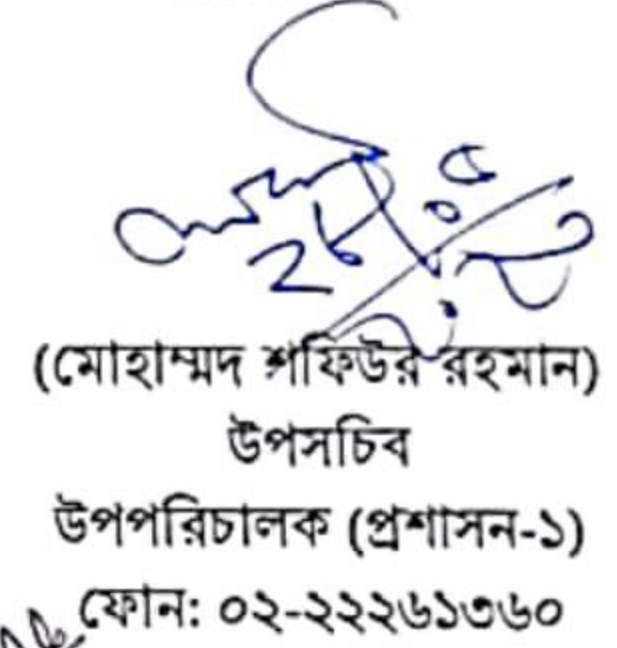 (মোহাম্মদ শফিউর রহমান)
উপসচিব
উপপরিচালক (প্রশাসন-১)
ফোন: ০২-২২২৬১৩৬০